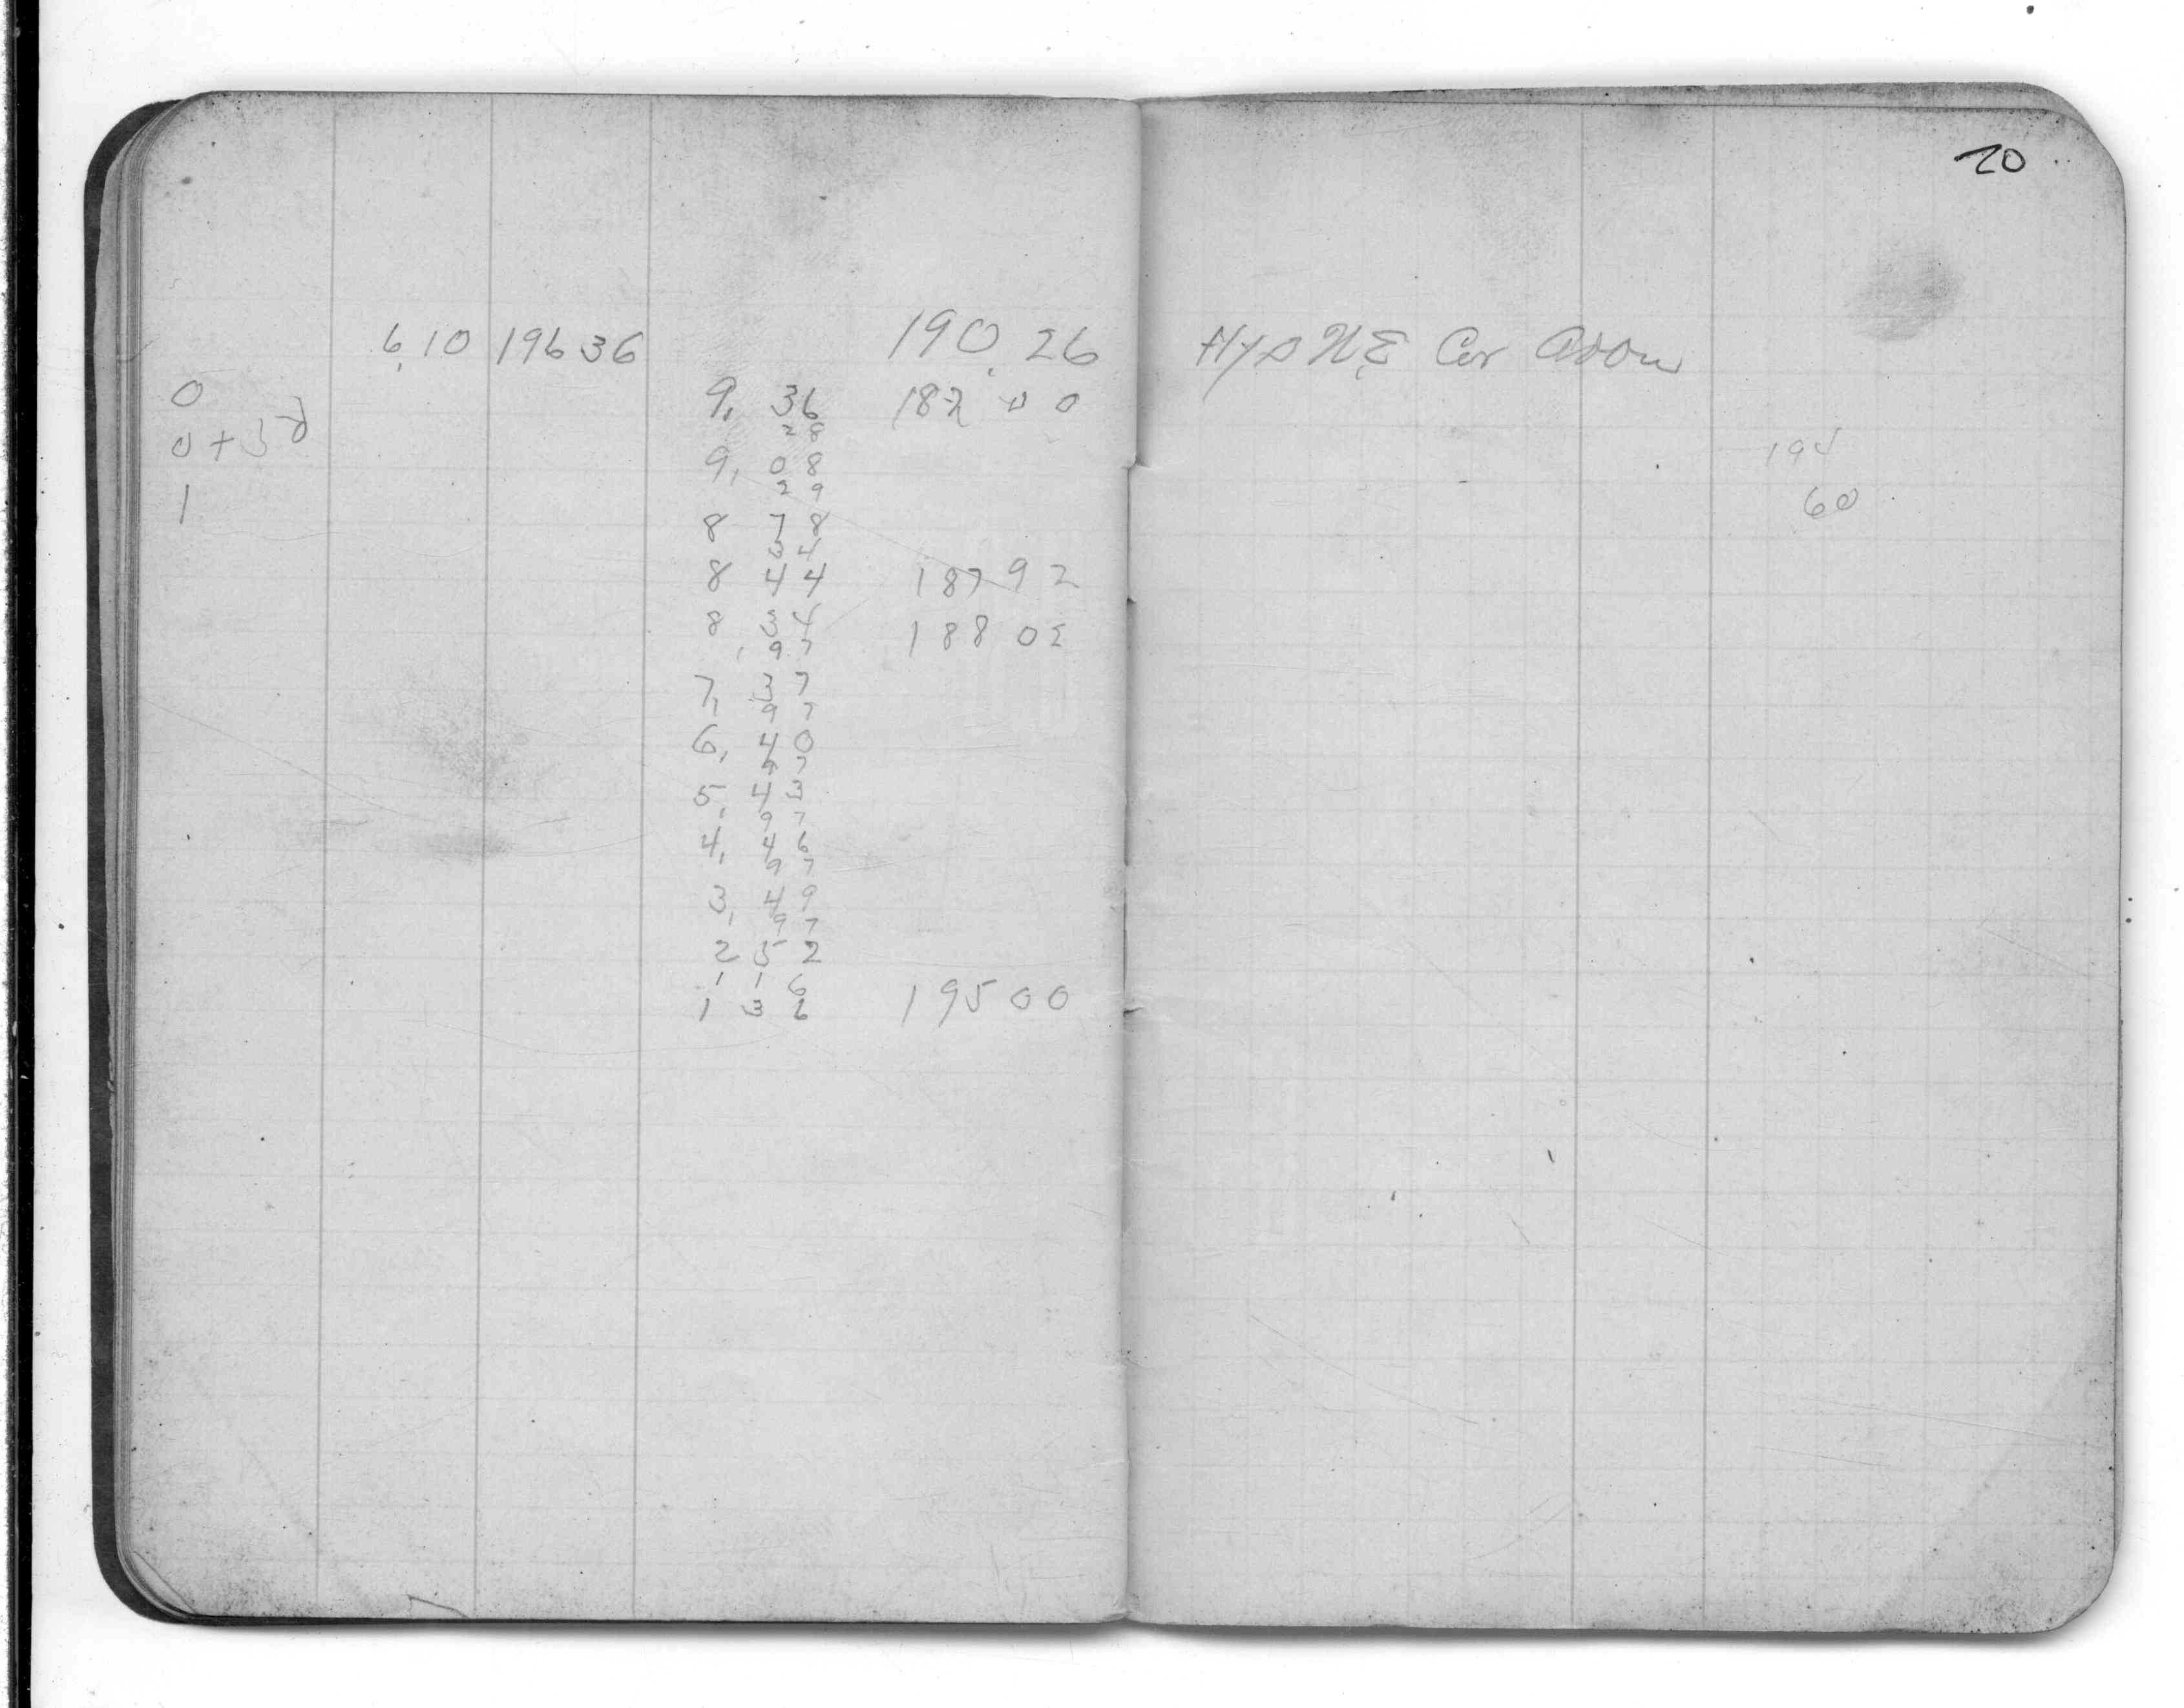 20
6.10 196 36 190.26 Hyd N.E. Cor
0 9. 36 187 00
28
0+5
9. 08
29
1 8 78
34
8 44 187 92
8 34 188 02
.97
7. 37
97
6. 40
97
5. 43
97
4. 46
97
3. 49
97
2 52
1 16
1 36 195 00
195
60